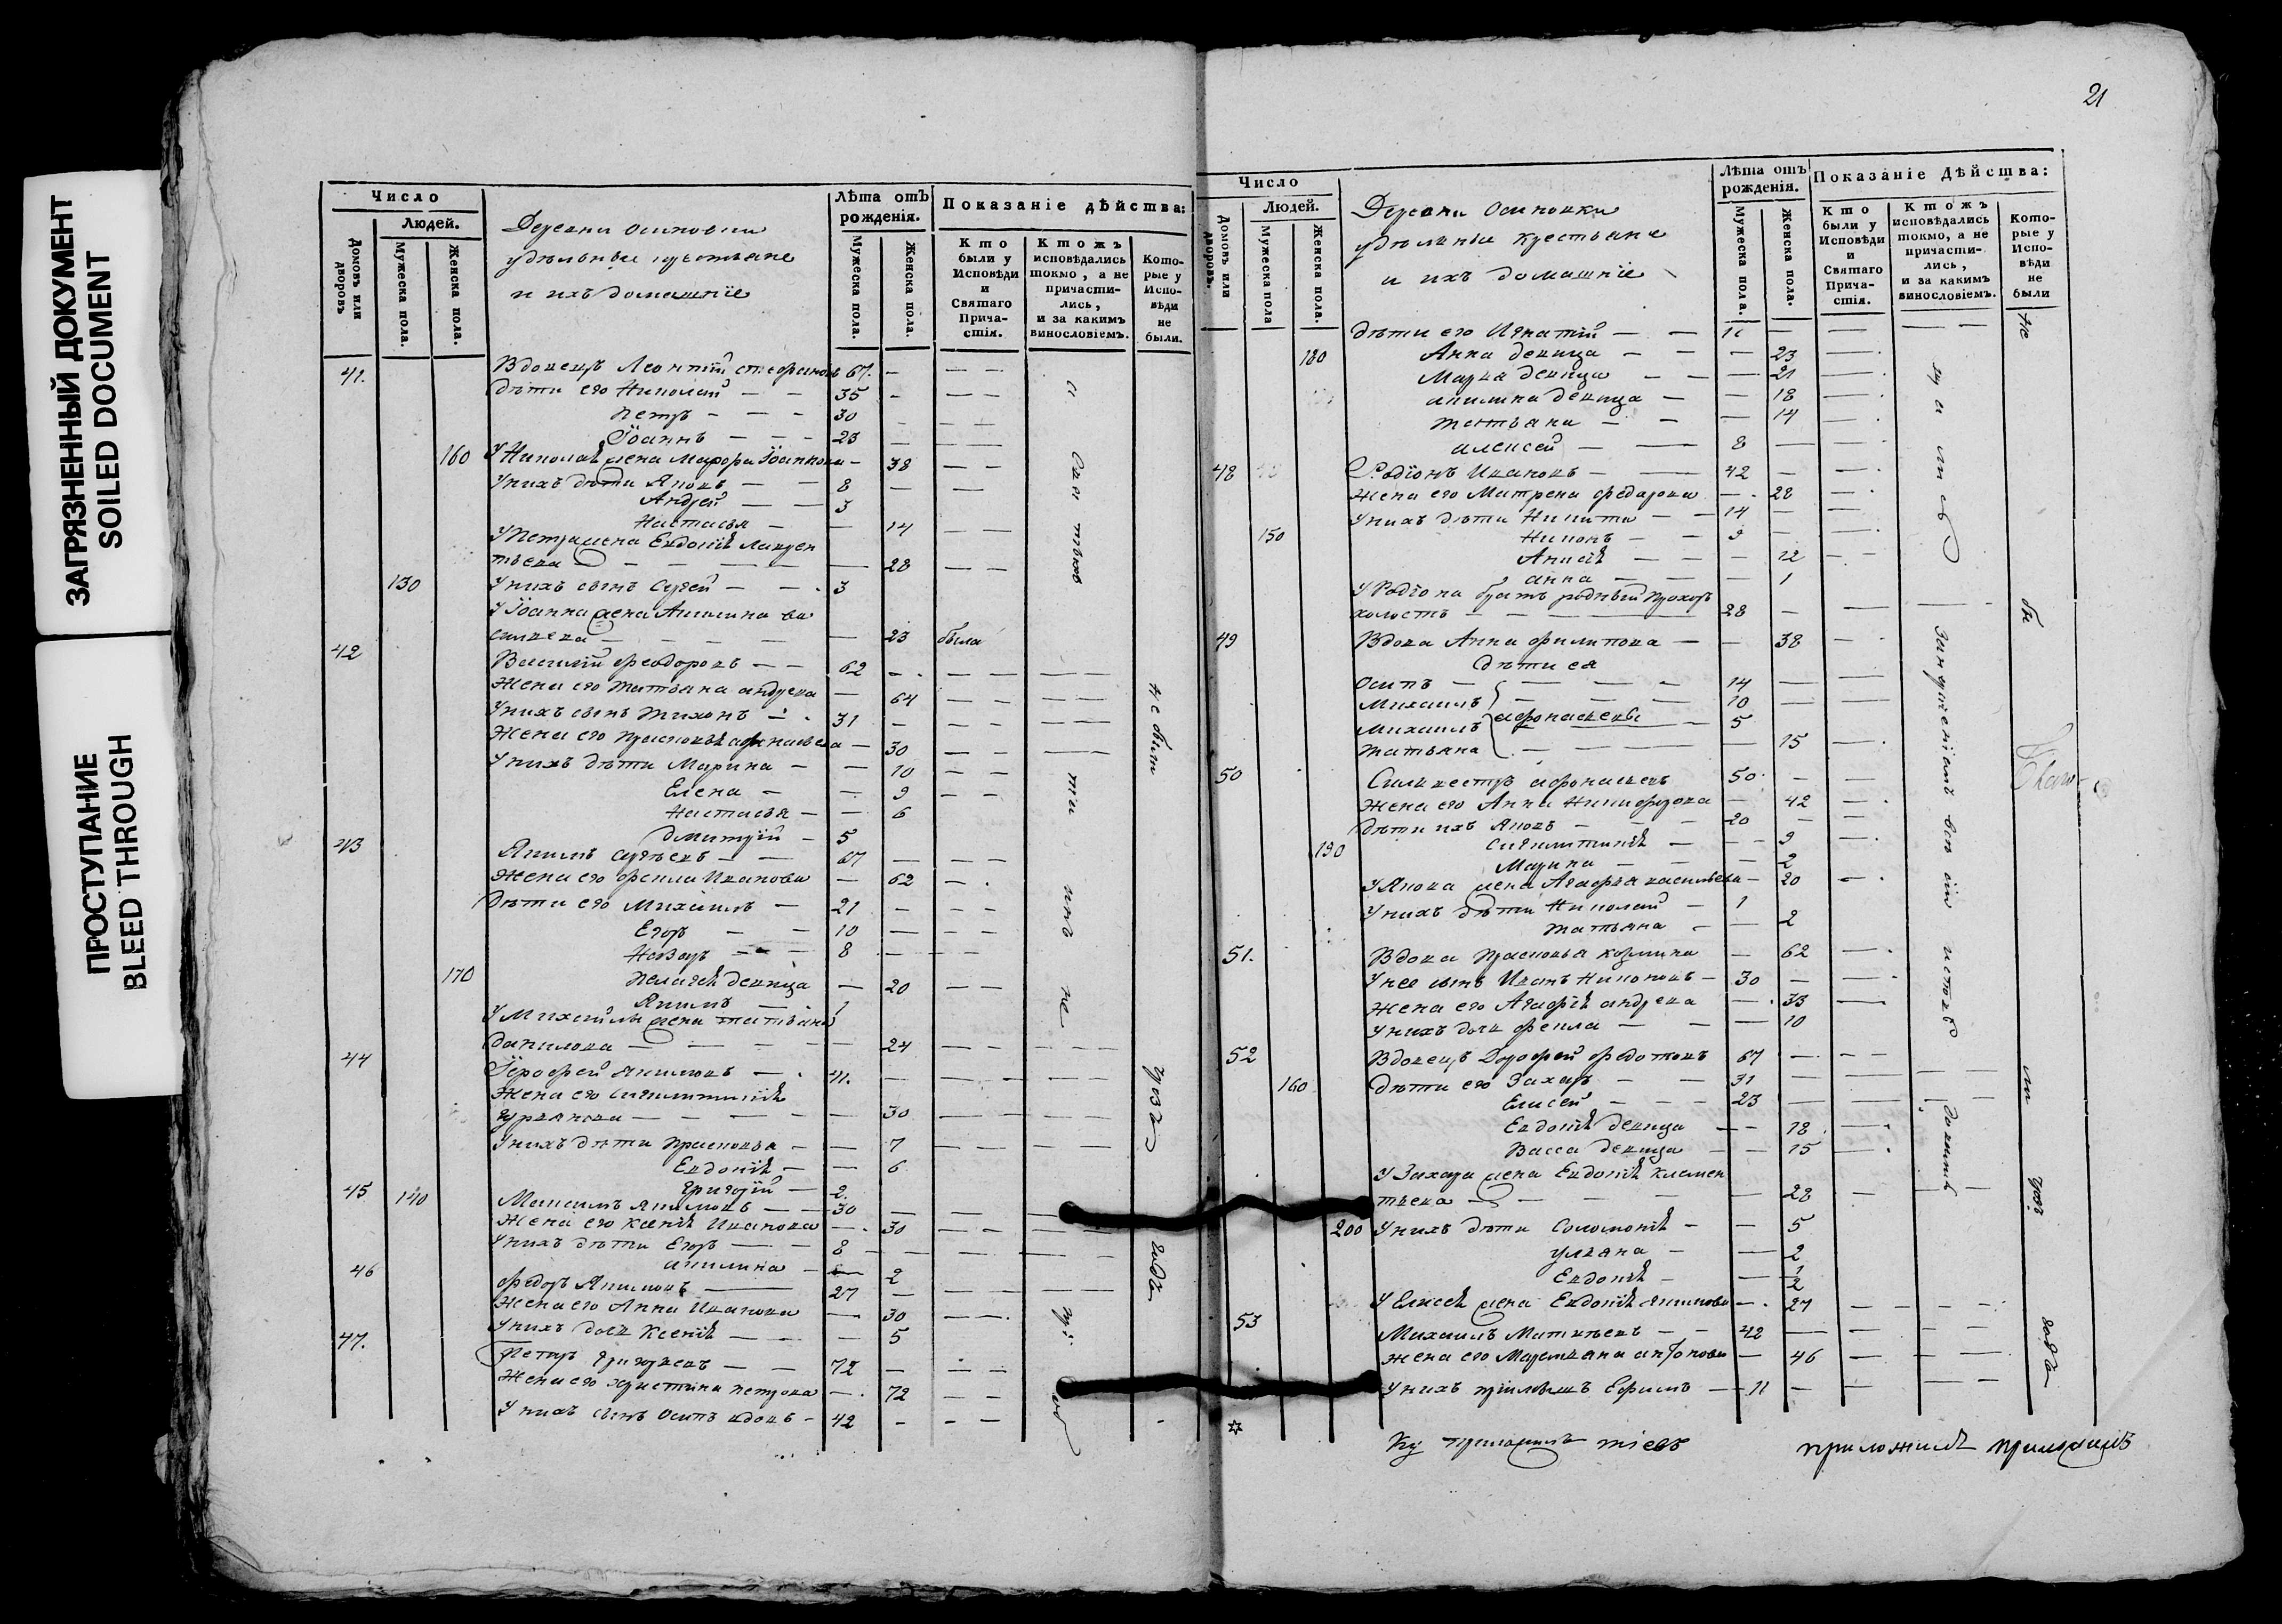 ЗАГРЯЗНЕННЫЙ ДОКУМЕНТ
SOILED DOCUMENT
ПРОСТУПАНИЕ
BLEED THROUGH
Число
Людей.
Домовъ или дворовъ
Мужеска пола.
Женска пола.
Деревни Осиновки
удѣльные крестьяне
и ихъ домашніе
Лѣта отъ рожденія.
Мужеска пола.
Женска пола.
Показаніе дѣйства:
Кто были у Исповѣди и Святаго Причастія.
Ктожъ исповѣдались токмо, а не причастились, и за какимъ винословіемъ.
Которые у Исповѣди не были.
41. Вдовецъ Леонтій 67.
Дѣти его Николай 35
Петръ 30
Іоаннъ 23
160 У Николая жена Марфа Іоаннова 38
У нихъ дѣти Яковъ 8
Андрей 3
Настасья 14
У Петра жена Евдокія Лаврен
тьева 28
130 У нихъ сынъ Сергей 3
У Іоанна жена Акилина ва
сильева 23 была
42 Василий Феодоровъ 62
Жена его Татьяна Андреева 64
У нихъ сынъ Тихонъ 31
Жена его Прасковья Афонасьева 30
У нихъ дѣти Марина 10
Елена 9
Настасья 6
Дмитрій 5
43 Якимъ Сергѣевъ 67
Жена его Фекла Иванова 62
Дѣти его Михаилъ 21
Егоръ 10
Назаръ 8
170 Пелагія девица 20
Якимъ 1
У Михаилы жена Татьяна
Данилова 24
44 Іерофей Якимовъ 41.
Жена его Сигклитикія
Гурьянова 30
У нихъ дѣти Прасковья 7
Евдокія 6
Григорій 2.
45 140 Максимъ Якимовъ 30
Жена его Ксенія Иванова 30
У нихъ дѣти Егоръ 8
Акилина 2
46 Федоръ Якимовъ 27
Жена его Анна Иванова 30
У нихъ дочь Ксенія 5
47. Петръ Григорьевъ 72
Жена его Христина Петрова 72
У нихъ сынъ Осипъ вдовъ 42
не были
чрезъ
годъ
21
Число
Людей.
Домовъ или дворовъ.
Мужеска пола
Женска пола.
Деревни Осиновки
удѣльные крестьяне
и ихъ домашніе
Лѣта отъ рожденія.
Мужеска пола.
Женска пола.
Показаніе Дѣйства:
Кто были у Исповѣди и Святаго Причастія.
Ктожъ исповѣдались токмо, а не причастились, и за какимъ винословіемъ.
Которые у Исповѣди не были
Дѣти его Игнатій
180 Анна девица 23
Марья девица 21
Акилина девица 18
Татьяна 14
Алексей 8
48 Родіонъ Ивановъ 42
Жена его Матрена Федорова 28
У нихъ дѣти Никита 14
150 Никонъ 9
Анисія 12
Анна 1
У Родіона братъ родный Прохоръ
холостъ 28
49 Вдова Анна Филипова 38
Дѣти ея
Осипъ 14
Михаилъ 10
Афонасьевы
Михаилъ 5
Татьяна 15
50 Сильвестръ Афонасьевъ 50
Жена его Анна Никифорова 42
Дѣти ихъ Яковъ 20
190 Сигклитикія 9
Марина 2
У Якова жена Агафья Васильева 20
У нихъ дѣти Николай 1
Татьяна 2
51. Вдова Прасковья Козмина 62
У нее сынъ Иванъ Никоновъ 30
Жена его Агафія Андреева 33
У нихъ дочь Фекла 10
52 Вдовецъ Дорофей Федотовъ 67
160 Дѣти его Захаръ 31
Елисей 23
Евдокія девица 18
Васса девица 15
У Захара жена Евдокія Клемен
тьева 28
200 У нихъ дѣти Соломонія 5
Ульяна 2
Евдокія
У Елисея жена Евдокія Якимова 27
53 Михаилъ Матвѣевъ 42
Жена его Маремьяна Антонова 46
У нихъ пріимышъ Ефимъ 11
не
бы
ли
чрез
годъ